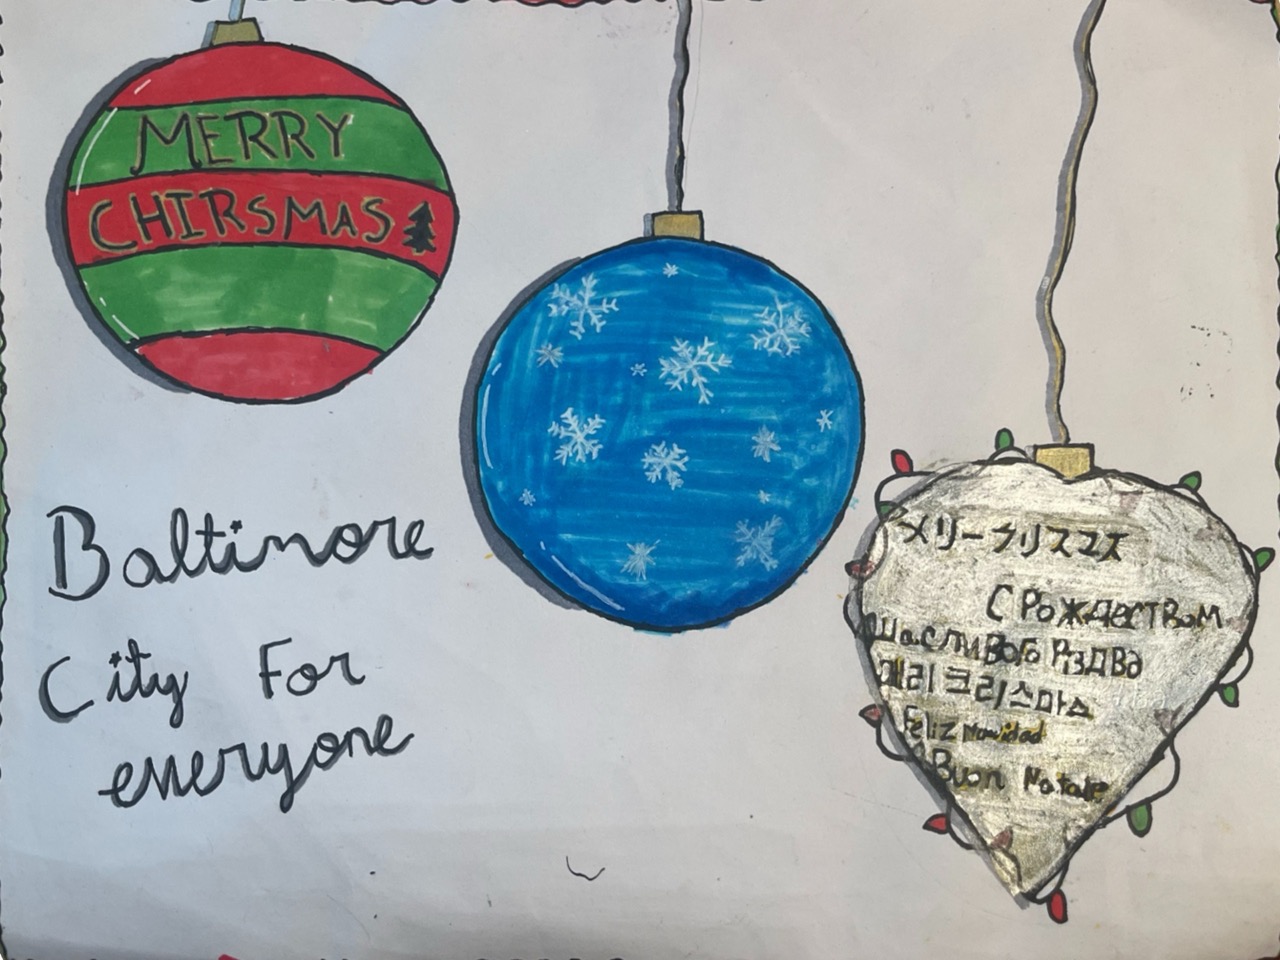 MERRY
CHIRSMAS
Baltimore
City For
everyone
メリークリスマス
С РОЖДЕСТВОМ
Щасливого Різдва
메리 크리스마스
Feliz Navidad
Buon Natale